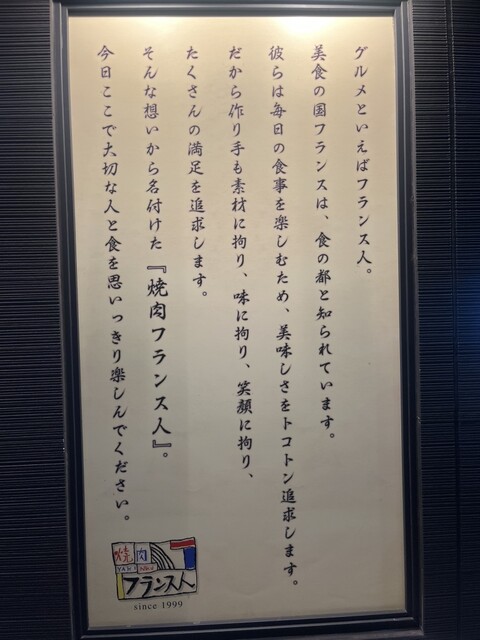 グルメといえばフランス人。
美食の国フランスは、食の都と知られています。
彼らは毎日の食事を楽しむため、美味しさをトコトン追求します。
だから作り手も素材に拘り、味に拘り、笑顔に拘り、
たくさんの満足を追求します。
そんな想いから名付けた『焼肉フランス人』。
今日ここで大切な人と食を思いっきり楽しんでください。
焼肉
YAKINIKU
フランス人
since 1999